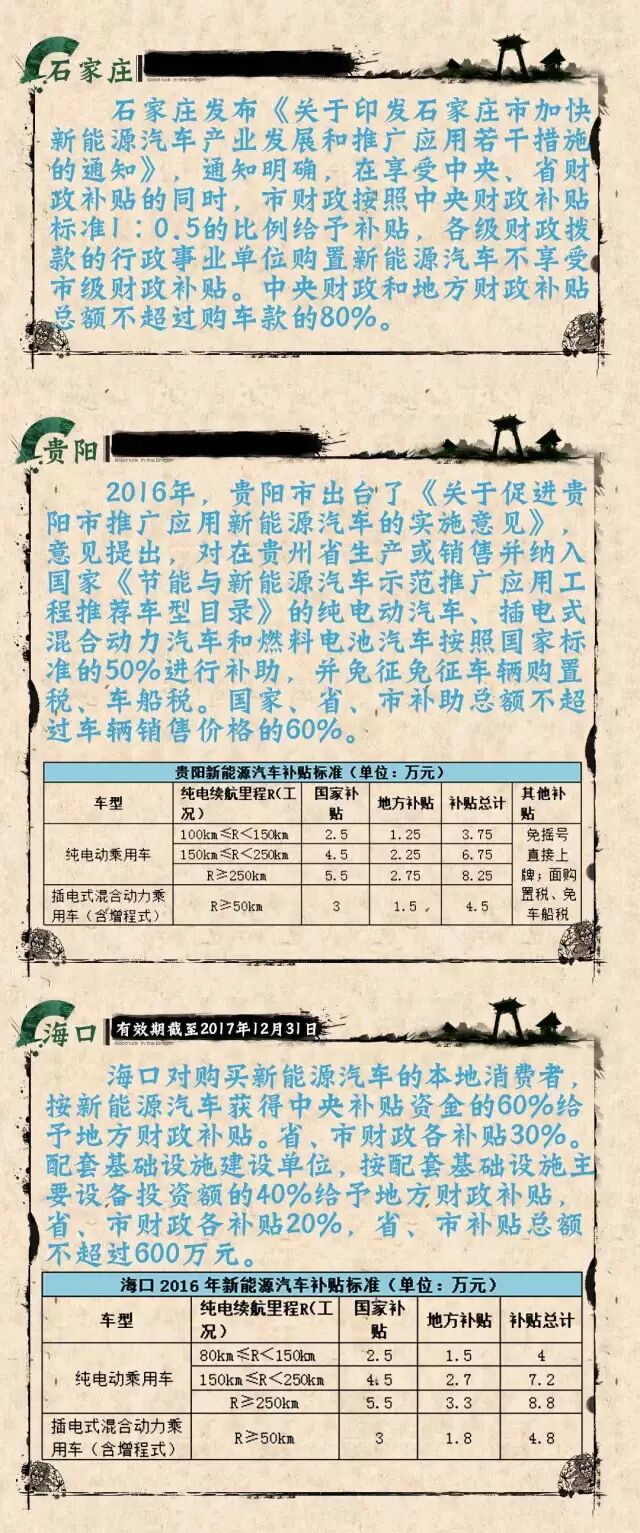 石家庄
Good luck in the Dragon
石家庄发布《关于印发石家庄市加快
新能源汽车产业发展和推广应用若干措施
的通知》，通知明确，在享受中央、省财
政补贴的同时，市财政按照中央财政补贴
标准1：0.5的比例给予补贴，各级财政拨
款的行政事业单位购置新能源汽车不享受
市级财政补贴。中央财政和地方财政补贴
总额不超过购车款的80%。
贵阳
Good luck in the Dragon
2016年，贵阳市出台了《关于促进贵
阳市推广应用新能源汽车的实施意见》，
意见提出，对在贵州省生产或销售并纳入
国家《节能与新能源汽车示范推广应用工
程推荐车型目录》的纯电动汽车、插电式
混合动力汽车和燃料电池汽车按照国家标
准的50%进行补助，并免征免征车辆购置
税、车船税。国家、省、市补助总额不超
过车辆销售价格的60%。
贵阳新能源汽车补贴标准（单位：万元）
车型 纯电续航里程R(工况) 国家补贴 地方补贴 补贴总计 其他补贴
纯电动乘用车 100km≤R<150km 2.5 1.25 3.75 免摇号直接上牌；面购置税、免车船税
150km≤R<250km 4.5 2.25 6.75
R≥250km 5.5 2.75 8.25
插电式混合动力乘用车（含增程式） R≥50km 3 1.5 4.5
海口 有效期截至2017年12月31日
Good luck in the Dragon
海口对购买新能源汽车的本地消费者，
按新能源汽车获得中央补贴资金的60%给
予地方财政补贴。省、市财政各补贴30%。
配套基础设施建设单位，按配套基础设施主
要设备投资额的40%给予地方财政补贴，
省、市财政各补贴20%，省、市补贴总额
不超过600万元。
海口2016年新能源汽车补贴标准（单位：万元）
车型 纯电续航里程R(工况) 国家补贴 地方补贴 补贴总计
纯电动乘用车 80km≤R<150km 2.5 1.5 4
150km≤R<250km 4.5 2.7 7.2
R≥250km 5.5 3.3 8.8
插电式混合动力乘用车（含增程式） R≥50km 3 1.8 4.8